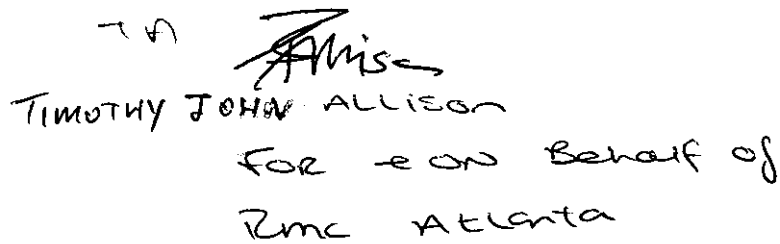 TA Allison
TIMOTHY JOHN ALLISON
FOR & ON Behalf of
RMC Atlanta